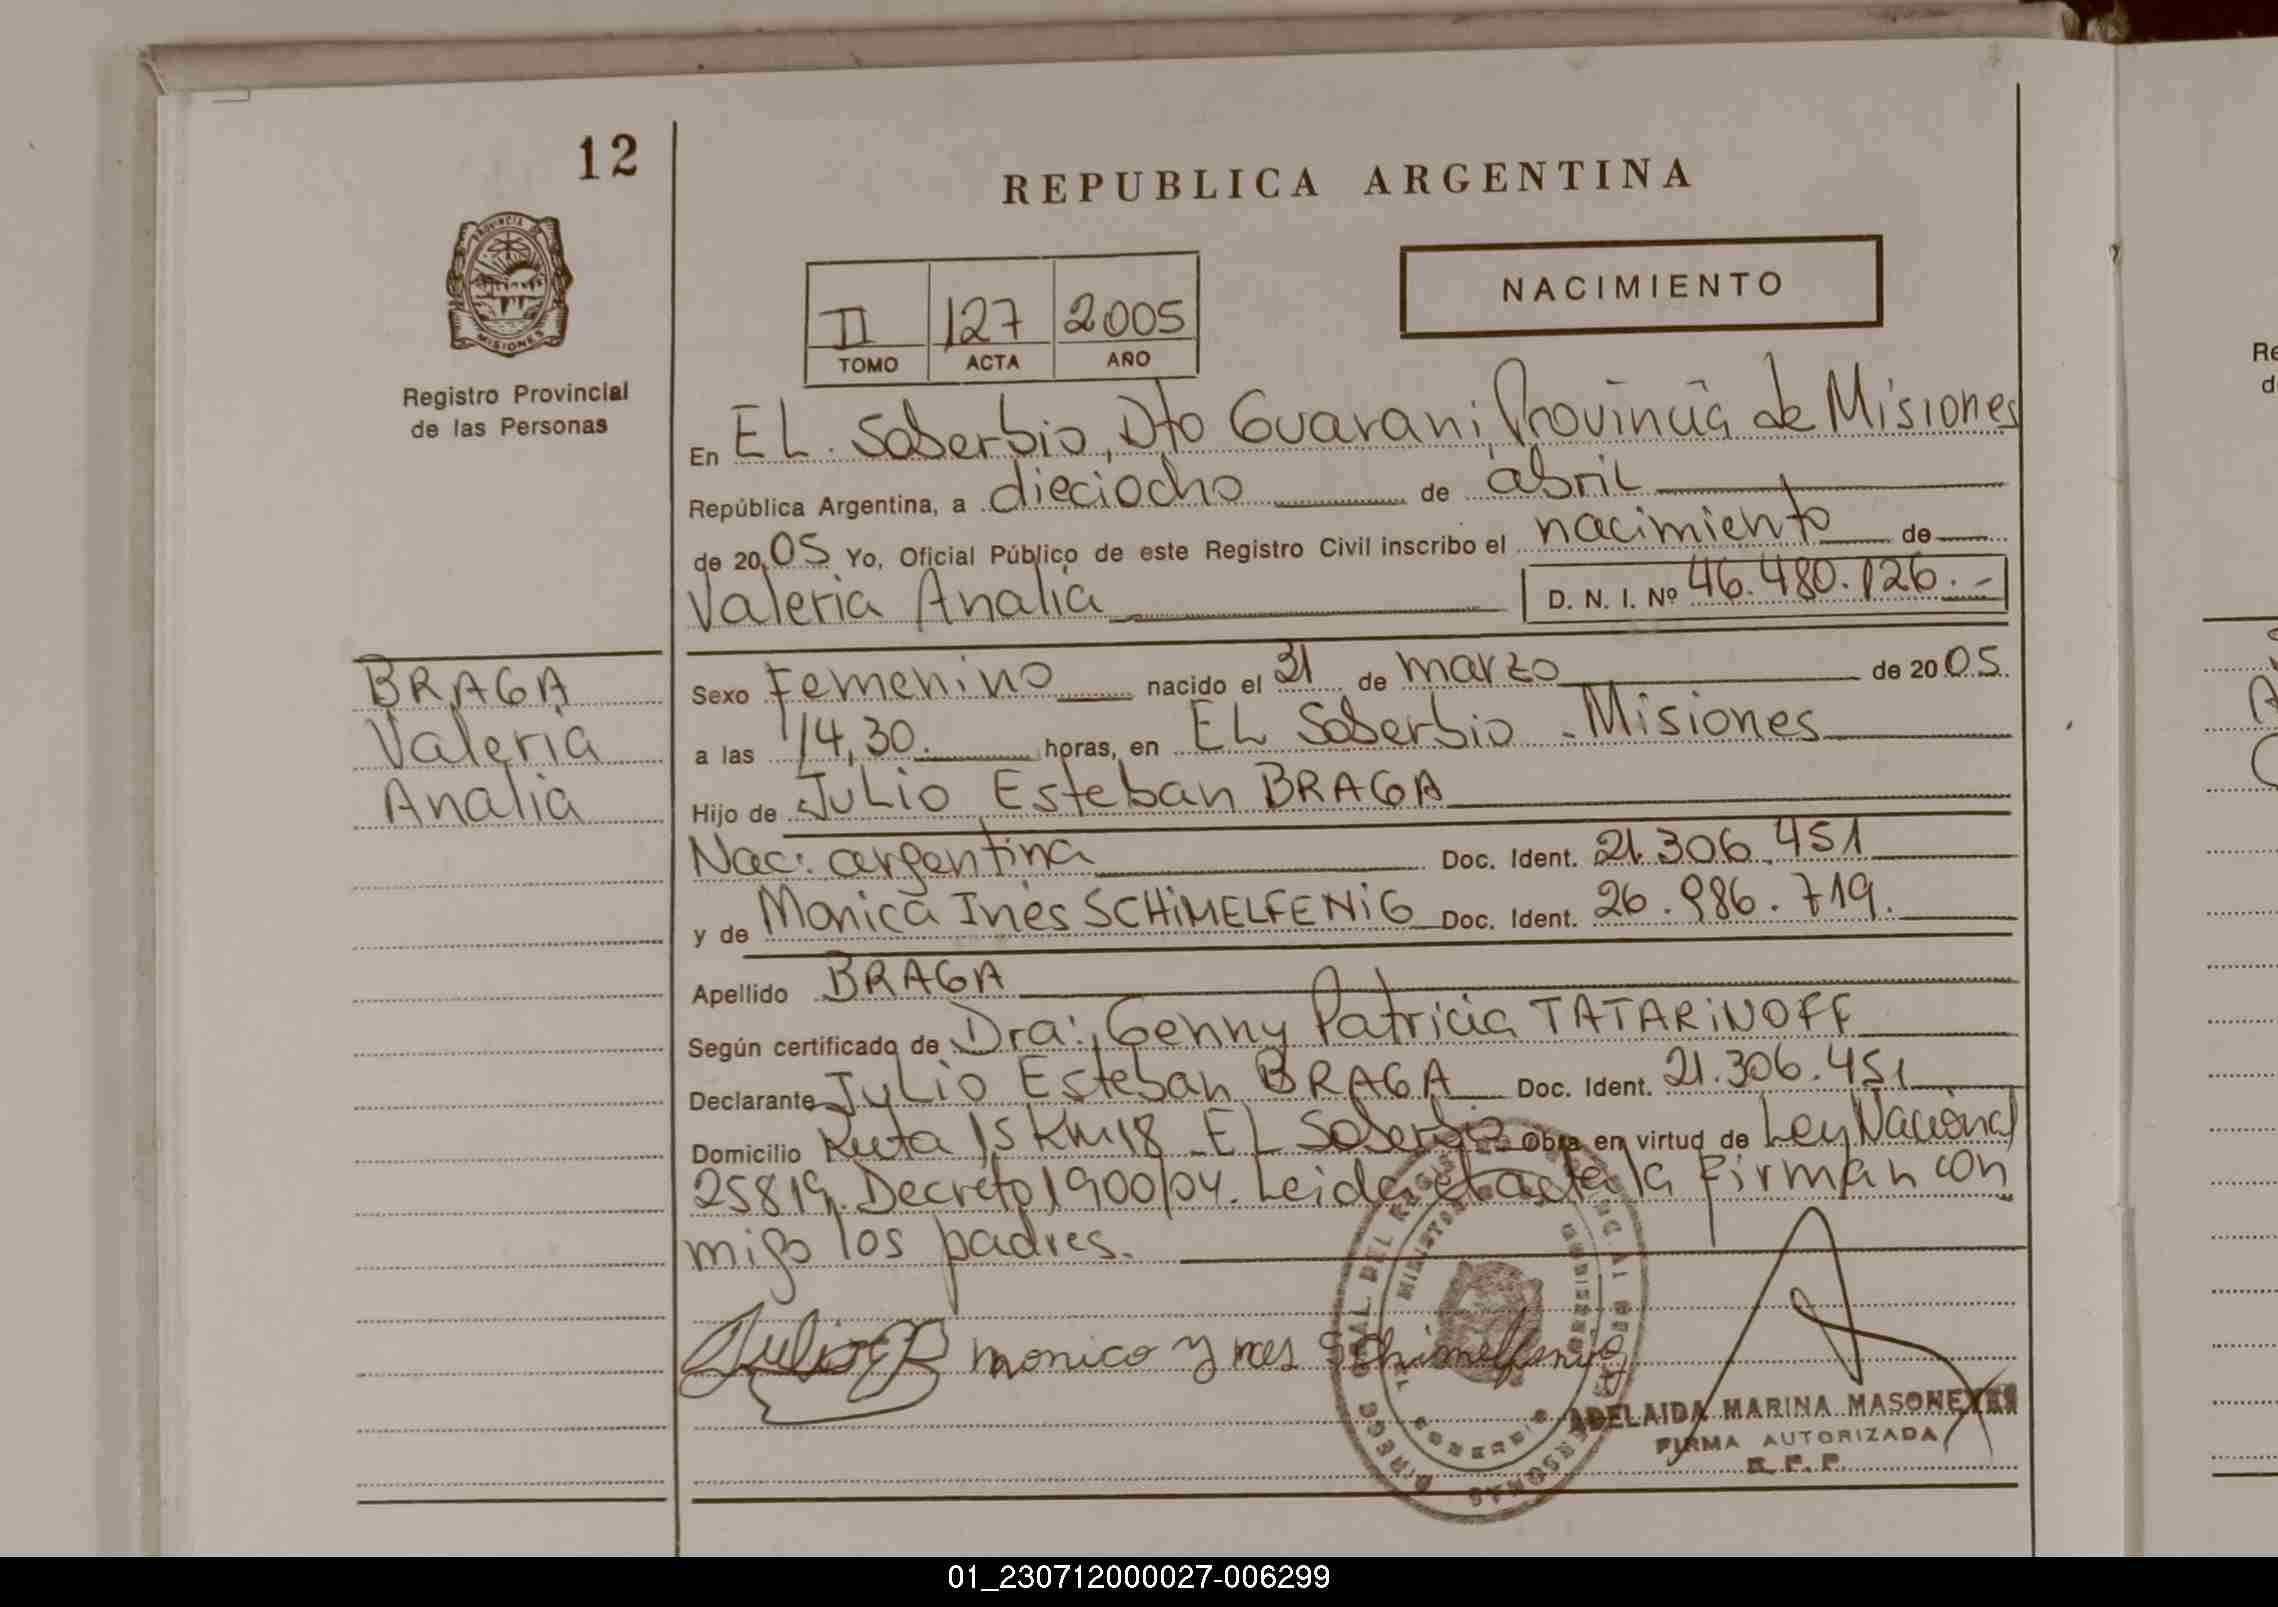 12
REPUBLICA ARGENTINA
PROVINCIA DE
MISIONES
Registro Provincial
de las Personas
NACIMIENTO
II 127 2005
TOMO ACTA AÑO
En EL. Soberbio, Dto Guarani, Provincia de Misiones
República Argentina, a dieciocho de abril
de 2005 Yo, Oficial Público de este Registro Civil inscribo el nacimiento de
Valeria Analia D. N. I. Nº 46.480.126.-
BRAGA
Valeria
Analia
Sexo Femenino nacido el 31 de marzo de 2005.
a las 14,30. horas, en EL Soberbio - Misiones
Hijo de Julio Esteban BRAGA
Nac: argentina Doc. Ident. 21.306.451
y de Monica Inés SCHiMELFENiG Doc. Ident. 26.986.719.
Apellido BRAGA
Según certificado de Dra: Genny Patricia TATARiNOFF
Declarante Julio Esteban BRAGA Doc. Ident. 21.306.451
Domicilio Ruta 15 Km18 - EL Soberbio Obra en virtud de Ley Nacional
25819. Decreto 1900/04. Leida el acta la firman con
migo los padres.
monico y nes Schimelfenig
ADELAIDA MARINA MASONEYRE
FIRMA AUTORIZADA
R. P. P.
Re
d
01_230712000027-006299